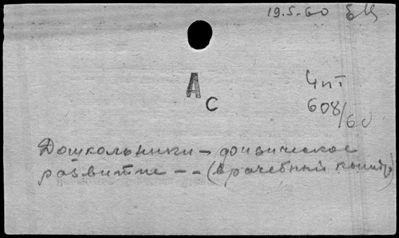 19.5-60
А
С
4пт
608/60
Дошкольники – физическое
развитие – – (врачебный